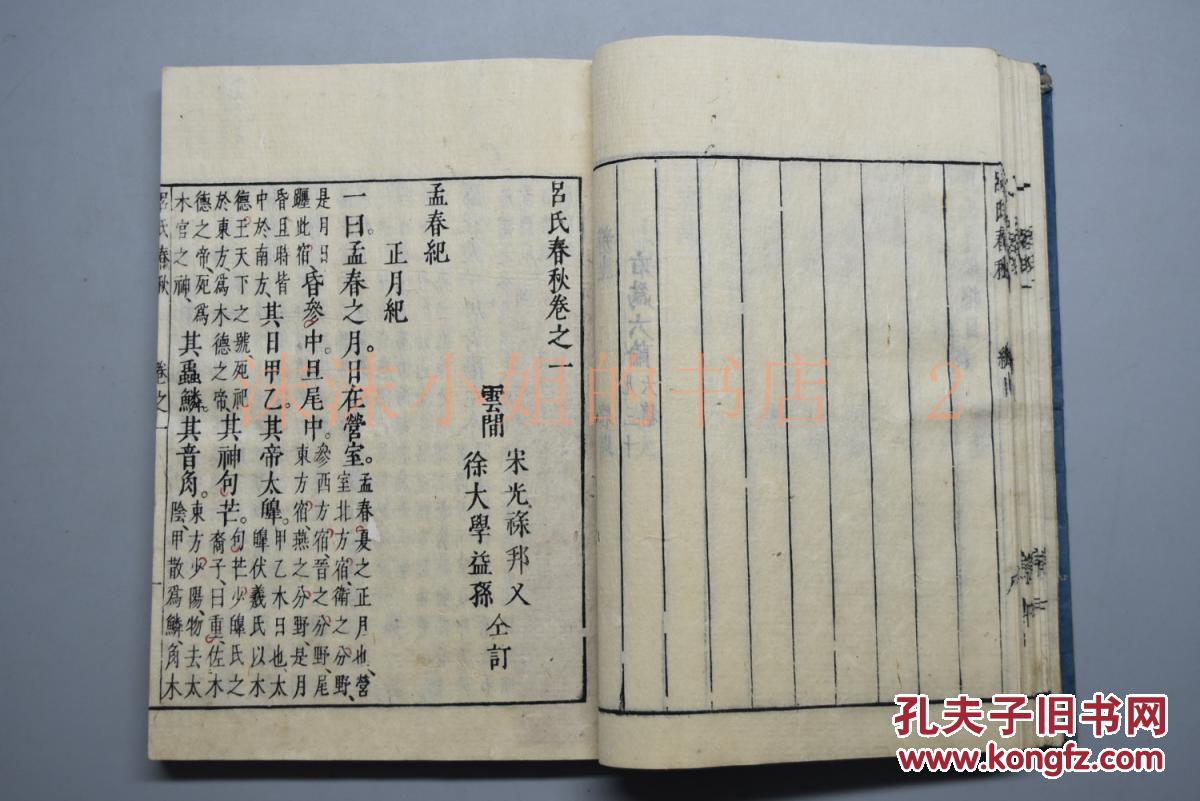 呂氏春秋卷之一
雲間
宋光祿邦乂
徐大學益孫
仝訂
孟春紀
正月紀
一曰。孟春之月。日在營室。孟春、夏之正月也、營室北方宿、衛之分野、
是月日躔此宿昏參中。旦尾中。參西方宿、晉之分野、尾東方宿、燕之分野、是月
昏旦時皆中於南方、其日甲乙。其帝太皥。甲乙木日也、太皥伏羲氏以木
德王天下之號、死祀於東方、爲木德之帝、其神句芒。句芒、少皥氏之裔子、曰重、佐木
德之帝、死爲木官之神、其蟲鱗。其音角。東方少陽、物去太陰、甲散爲鱗、角木
呂氏春秋
卷之一
一
沫沫小姐的书店 2
孔夫子旧书网
www.kongfz.com